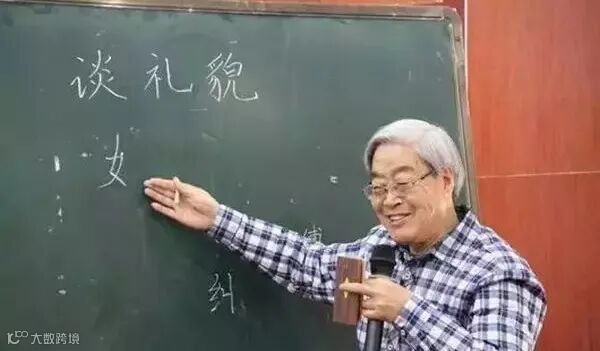 谈礼貌
女
纠
大数跨境